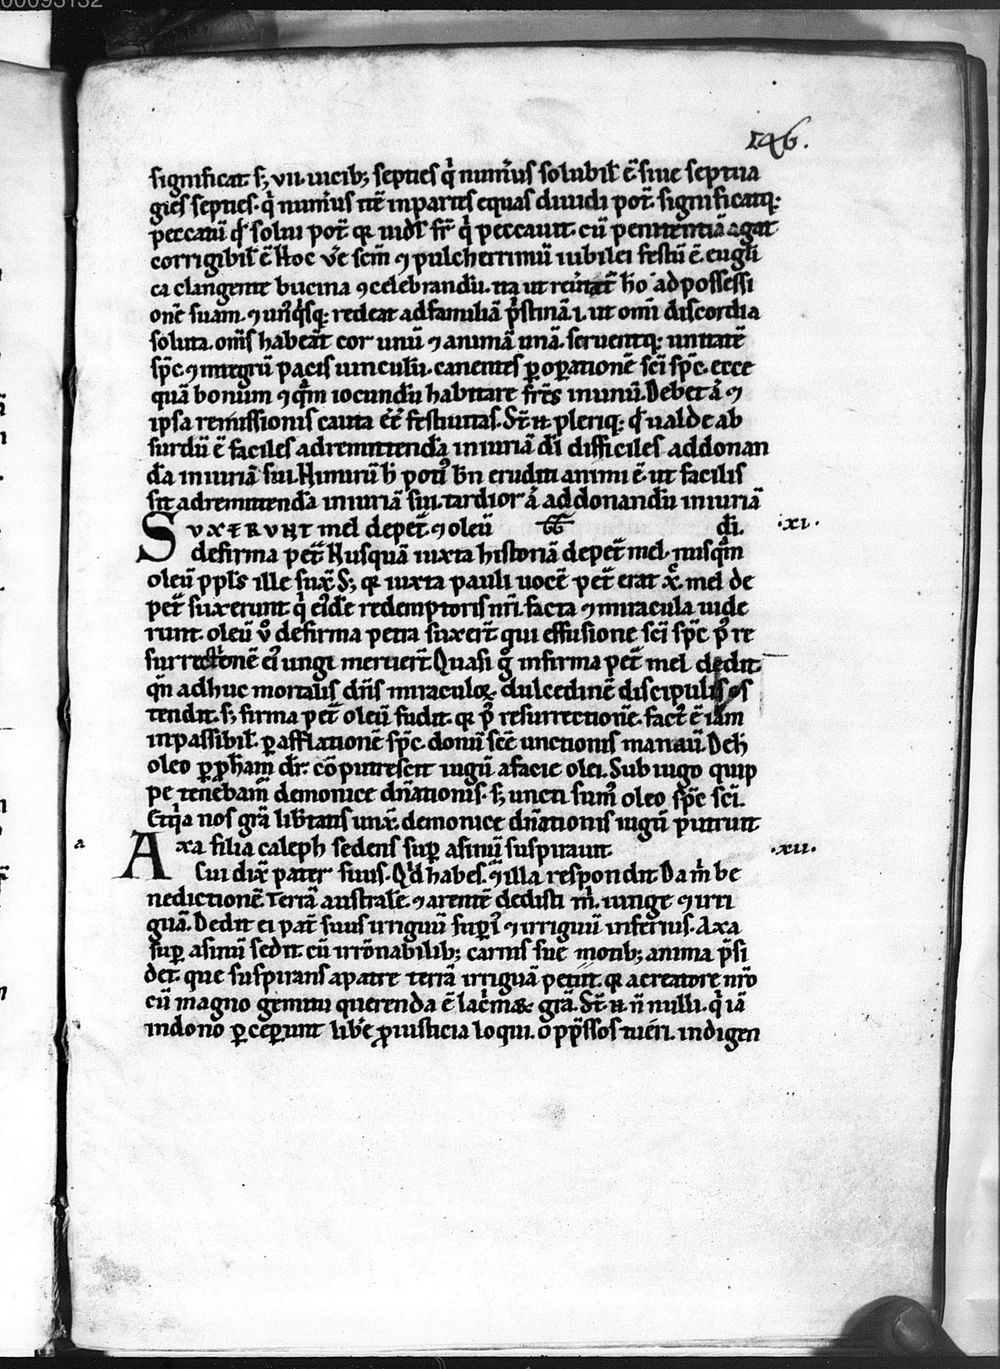 00093132
146.
significat. s; vii. uicib; septies q̇ num̄us solubil̄ ē siue septua
gies septies. q̇ num̄us itē inpartes equas diuidi pot̄. significatq;
peccatū qd̓ solui pot̄. qꝛ uidꝫ fr̄ q̇ peccauit. cū penitentiā agat
corrigibil̓ ē. Hoc ūe scm̄ ⁊ pulcherrimū iubilei festū ē. eugłi
ca clangente bucina ꝯcelebrandū. ita ut reū̄tat̄ hō adpossessi
onē suam. ⁊ unꝰq̇sq; redeat adfamiliā p̄stinā. i. ut omī discordia
soluta. oms̄ habeāt cor unū ⁊ animā unā. seruentq; unitatē
sp̄c ⁊ integrū pacis uinculū. canentes ꝑoꝑationē sci sp̄c. ecce
quā bonum ⁊ q̄m iocundū habitare frēs inunū. Debet ā ⁊
ipsa remissionis cauta eē festiuitas. St̄ .n. pleriq; qd̓ ualde ab
surdū ē faciles adremittendā iniuriā di difficiles addonan
dā iniuriā sui. Nimirū h̓ potiꝰ bn̄ eruditi animi ē. ut facilis
sit adremittendā iniuriā sui. tardior ā addonandū iniuriā
SVXERVNT mel depet̄. ⁊ oleū di. .xi.
defirma pet̄. Nusquā iuxta historiā depet̄ mel. nusq̄m
oleū ppl̄s ille sux̄. S; qꝛ iuxta pauli uocē pet̄ erat x̄. mel de
pet̄ suxerunt q̇ eiꝰdē redemptoris nr̄i. facta ⁊ miracula uide
runt. oleū ū defirma petra suxer̄t qui effusione sci sp̄c p̄ re
surrectionē eiꝰ ungi meruer̄t. Quasi g̊ infirma pet̄ mel dedit
qn̄ adhuc mortalis dn̄s miraculoꝝ dulcedinē discipulis os
tendit. s; firma pet̄ oleū fudit. qꝛ p̄ resurrectionē factꝰ ē iam
inpassibil̓. ꝑafflationē sp̄c. donū scē unctionis manaū. De h̓
oleo ꝑꝓham dr̄: cōputrescet iugū afacie olei. Sub iugo quip
pe tenebamꝰ demonice dn̄ationis. s; uncti sumꝰ oleo sp̄c sci.
Et q̇a nos grā lib̄tatis unx̄. demonice dn̄ationis iugū putruit
a
Axa filia caleph sedens suꝑ asinū suspirauit. .xii.
Cui dix̄ pater suus. Qd̓ habes. ⁊ illa respondit Da m̓ be
nedictionē. Terrā australē. ⁊ arentē dedisti m̓. iunge ⁊ irri
guā. Dedit ei pat̄ suus irriguū suꝑiꝰ ⁊ irriguū inferius. Axa
suꝑ asinū sedit. cū irrōnabilib; carnis sue motib; anima p̄si
det. que suspirans apatre terrā irriguā petiit. qꝛ acreatore nr̄o
cū magno gemitu querenda ē lac̓maꝝ grā. St̄ .n. n̄ nulli. q̇ iā
indono ꝑceperunt lib̄e ꝓiusticia loqui. opp̄ssos tueri. indigen